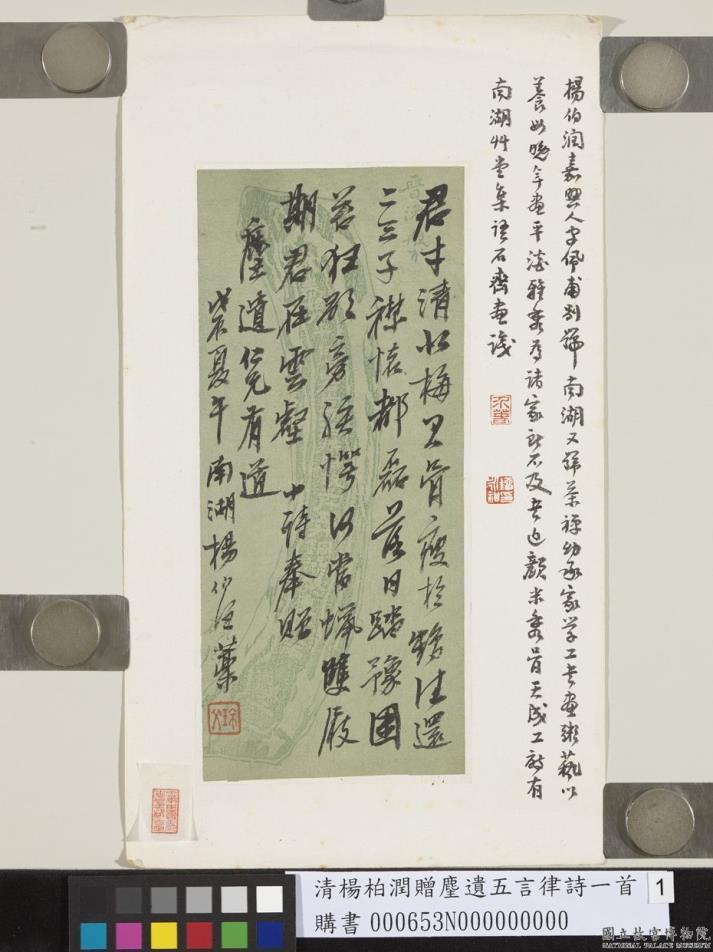 楊伯潤嘉興人字佩甫別號南湖又號茶禪幼承家學工書畫鬻藝以
養母晚年畫平淡雅秀為諸家所不及書近顏米秀骨天成工詩有
南湖艸堂集語石齋畫識
君才清梅骨瘦於鶴往還
二三子襟懷都磊落日踏豫園
苔狂歌旁猿愕何當蠟雙屐
期君在雲壑小詩奉贈
塵遺仁兄有道
戊辰夏午南湖楊伯潤藁
清楊柏潤贈塵遺五言律詩一首
1
購書 000653N000000000
國立故宮博物院
NATIONAL PALACE MUSEUM